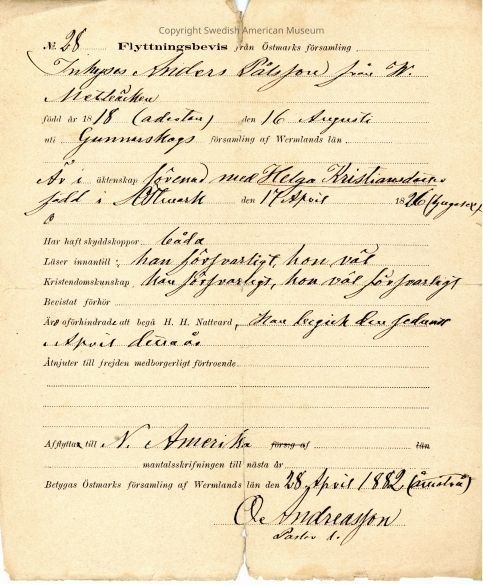 Copyright Swedish American Museum
№ 28 Flyttningsbevis från Östmarks församling
Inhyses Anders Pålsson från W.
född år 1818 (aderton) den 16 Augusti
uti Gunnarskogs församling af Wermlands län
Är i äktenskap förenad med Helga Kristiansdotter
född i den 17 April 1826
Har haft skyddskoppor båda
Läser innantill: han försvarligt, hon väl
Kristendomskunskap han försvarligt, hon väl försvarligt
Bevistat förhör
Äro oförhindrade att begå H. H. Nattvard, han begick den sednast
April detta år
Åtnjuter till frejden medborgerligt förtroende
Afflyttar till N. Amerika förs:g af län
mantalsskrifningen till nästa år
Betygas Östmarks församling af Wermlands län den 28 April 1882 (åttiotvå)
O. Andreasson
Pastor